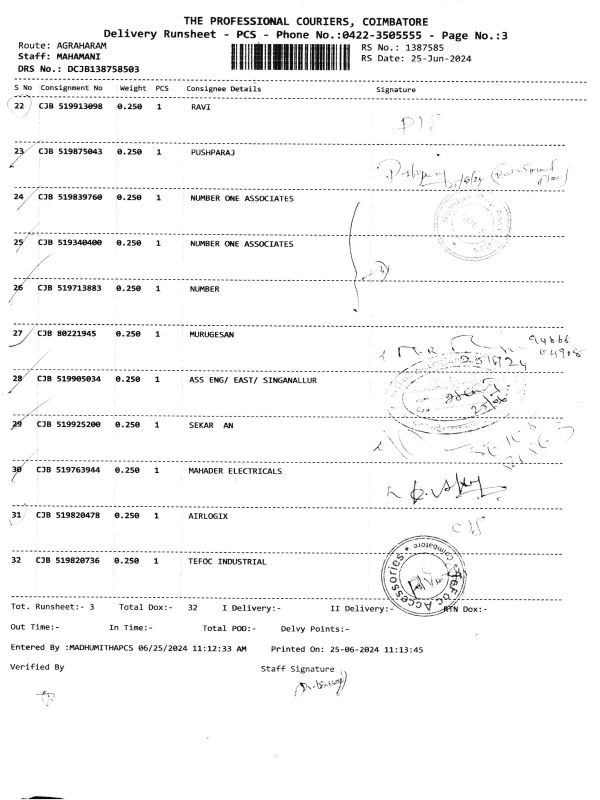 THE PROFESSIONAL COURIERS, COIMBATORE
Delivery Runsheet - PCS - Phone No.:0422-3505555 - Page No.:3
Route: AGRAHARAM RS No.: 1387585
Staff: MAHAMANI RS Date: 25-Jun-2024
DRS No.: DCJB138758503
S No Consignment No Weight PCS Consignee Details Signature
22 CJB 519913098 0.250 1 RAVI
23 CJB 519875043 0.250 1 PUSHPARAJ
24 CJB 519839760 0.250 1 NUMBER ONE ASSOCIATES
25 CJB 519340400 0.250 1 NUMBER ONE ASSOCIATES
26 CJB 519713883 0.250 1 NUMBER
27 CJB 80221945 0.250 1 MURUGESAN
28 CJB 519905034 0.250 1 ASS ENG/ EAST/ SINGANALLUR
29 CJB 519925200 0.250 1 SEKAR AN
30 CJB 519763944 0.250 1 MAHADER ELECTRICALS
31 CJB 519820478 0.250 1 AIRLOGIX
32 CJB 519820736 0.250 1 TEFOC INDUSTRIAL
TeFoc Accessories * Coimbatore *
Tot. Runsheet:- 3 Total Dox:- 32 I Delivery:- II Delivery:- RTN Dox:-
Out Time:- In Time:- Total POD:- Delvy Points:-
Entered By :MADHUMITHAPCS 06/25/2024 11:12:33 AM Printed On: 25-06-2024 11:13:45
Verified By Staff Signature